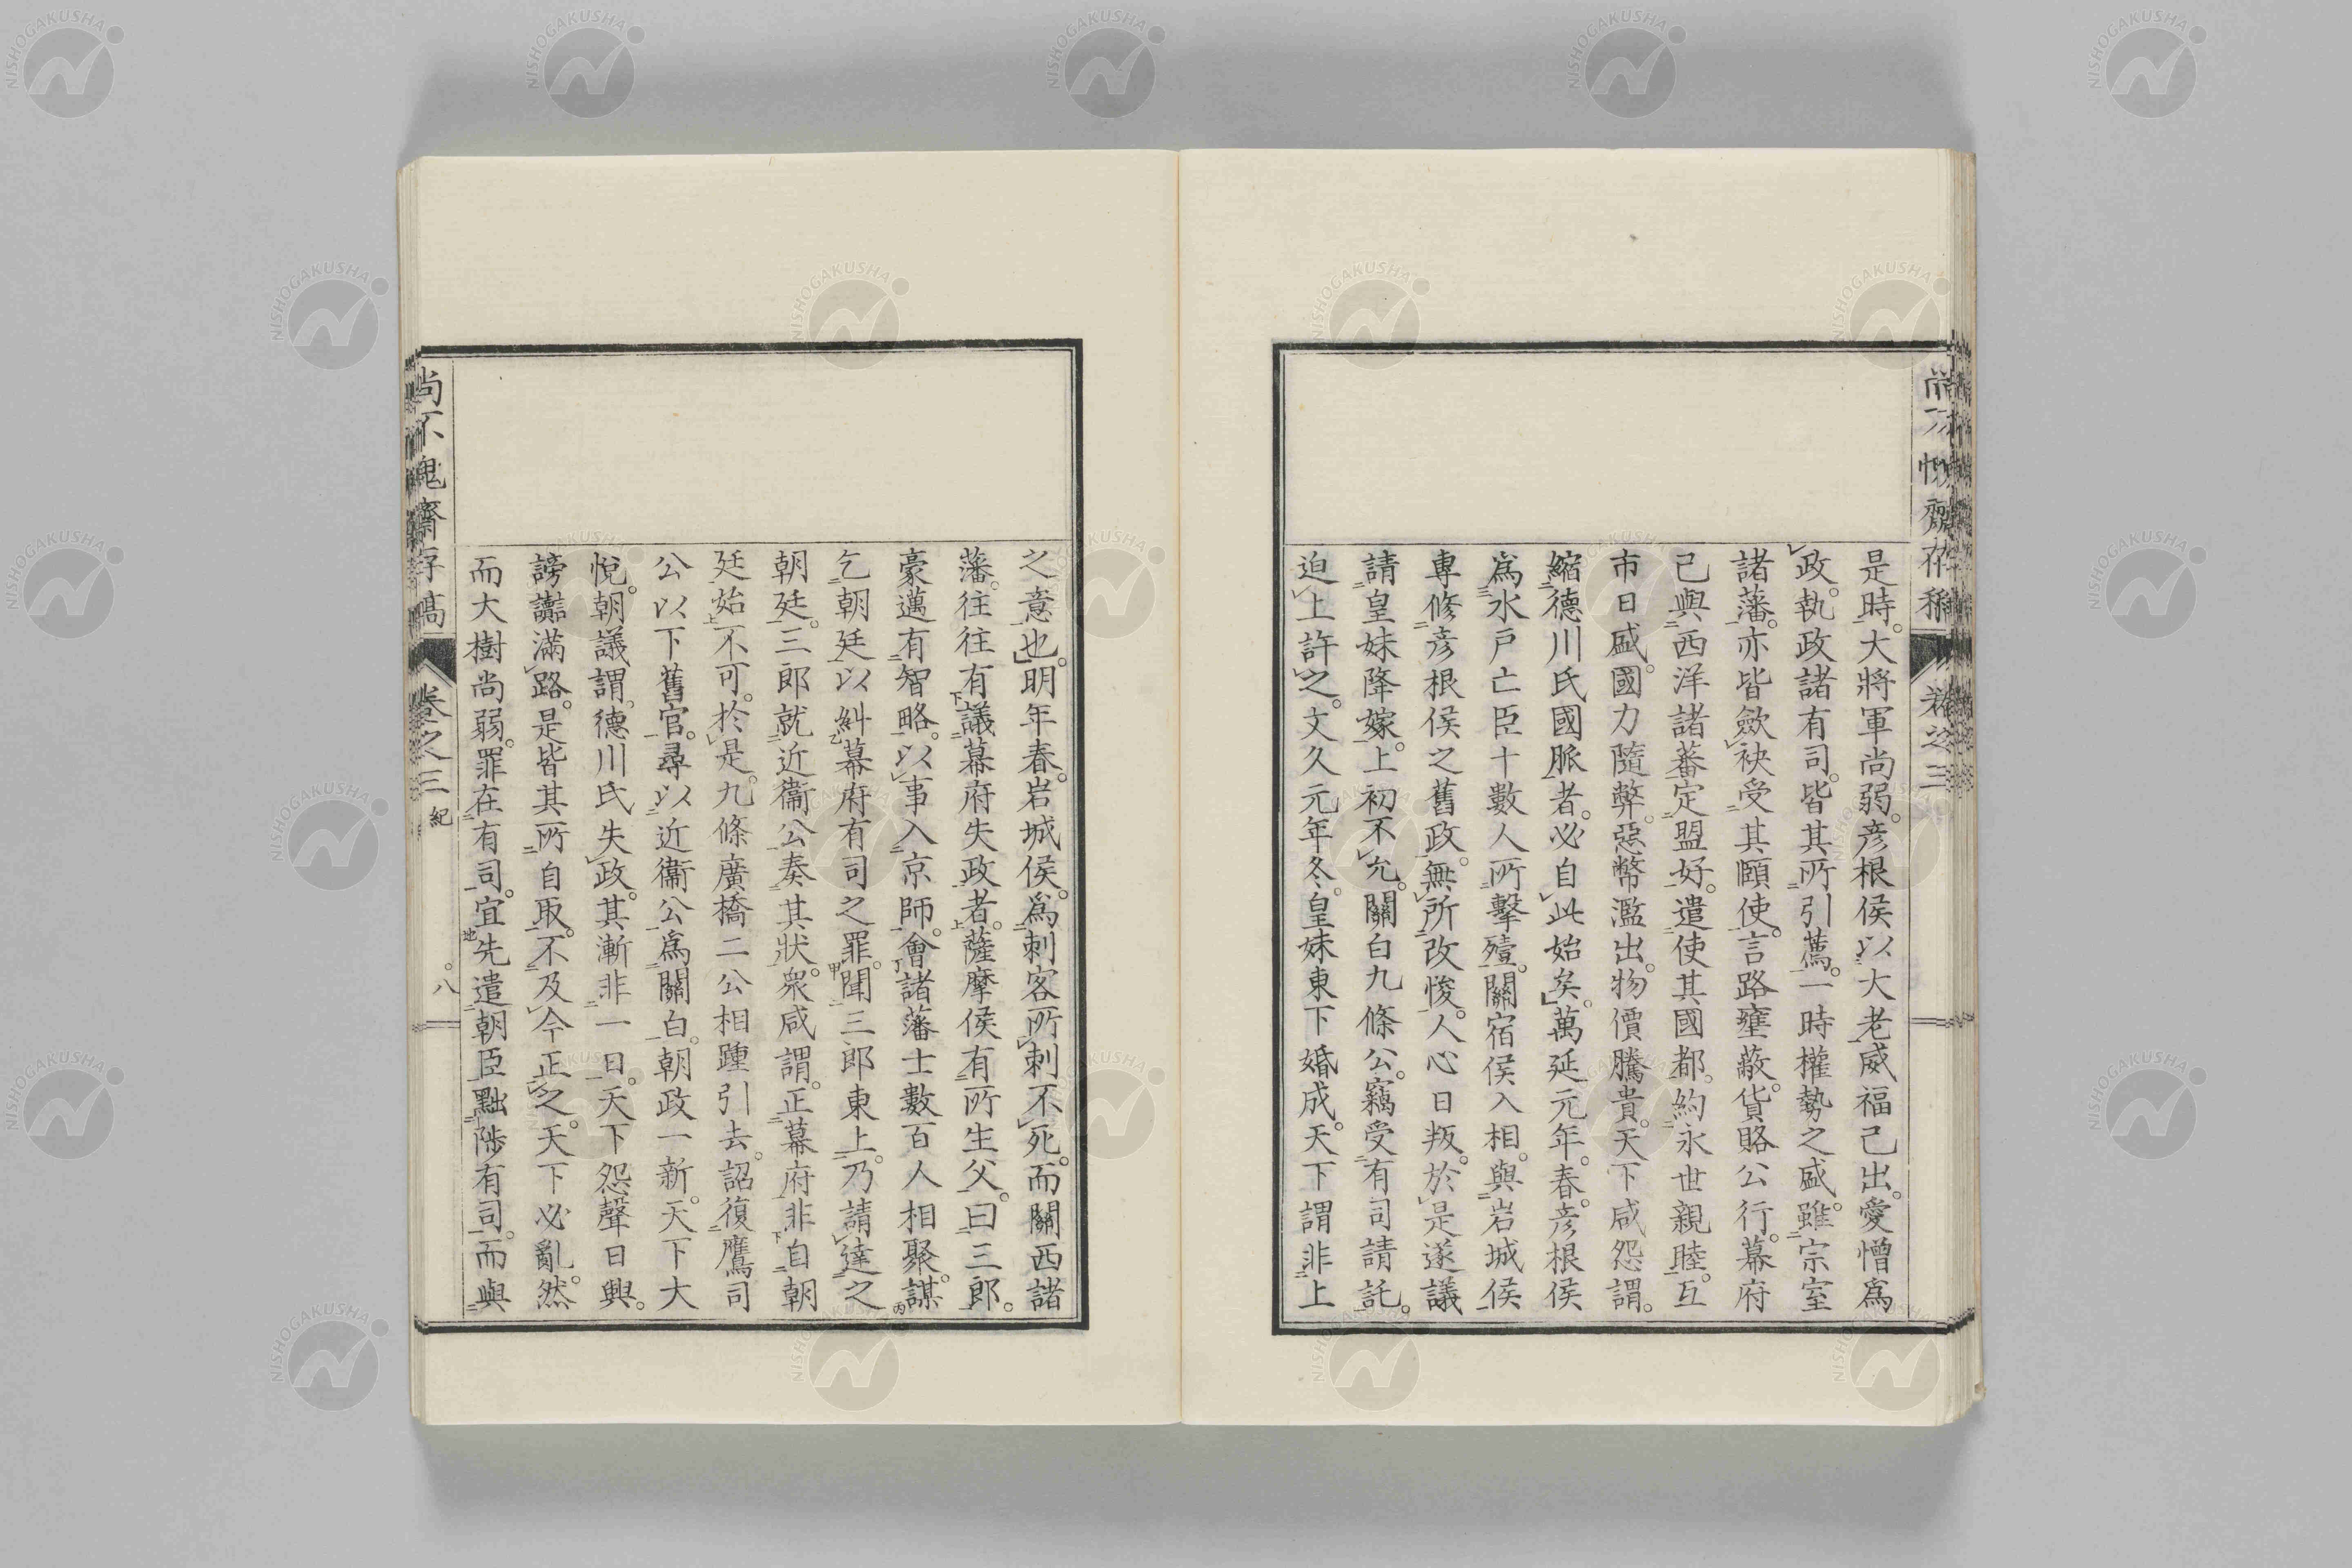 是時。大將軍尚弱。彦根侯以大老威福己出。愛憎爲
政。執政諸有司。皆其所引薦。一時權勢之盛。雖宗室
諸藩。亦皆歛袂受其頤使。言路壅蔽。貨賂公行。幕府
已與西洋諸蕃定盟好。遣使其國都。約永世親睦。互
市日盛。國力隨弊。惡幣濫出。物價騰貴。天下咸怨謂。
縮德川氏國脈者。必自此始矣。萬延元年。春。彦根侯
爲水戸亡臣十數人所擊殪。關宿侯入相。與岩城侯
專修彦根侯之舊政。無所改悛。人心日叛。於是遂議
請皇妹降嫁。上初不允。關白九條公。竊受有司請託。
迫上許之。文久元年冬。皇妹東下婚成。天下謂非上
之意也。明年春。岩城侯。爲刺客所刺不死。而關西諸
藩。往往有議幕府失政者。薩摩侯有所生父。曰三郎。
豪邁有智略。以事入京師。會諸藩士數百人相聚。謀
乞朝廷以糾幕府有司之罪。聞三郎東上。乃請達之
朝廷。三郎就近衞公奏其狀。衆咸謂。正幕府非自朝
廷始不可。於是。九條廣橋二公相踵引去。詔復鷹司
公以下舊官。尋以近衞公爲關白。朝政一新。天下大
悅。朝議謂。德川氏失政。其漸非一日。天下怨聲日興。
謗讟滿路。是皆其所自取。不及今正之。天下必亂。然
而大樹尚弱。罪在有司。宜先遣朝臣黜陟有司。而與
尚不愧齋存稿
卷之三
紀
八
尚不愧齋存稿
卷之三
NISHOGAKUSHA